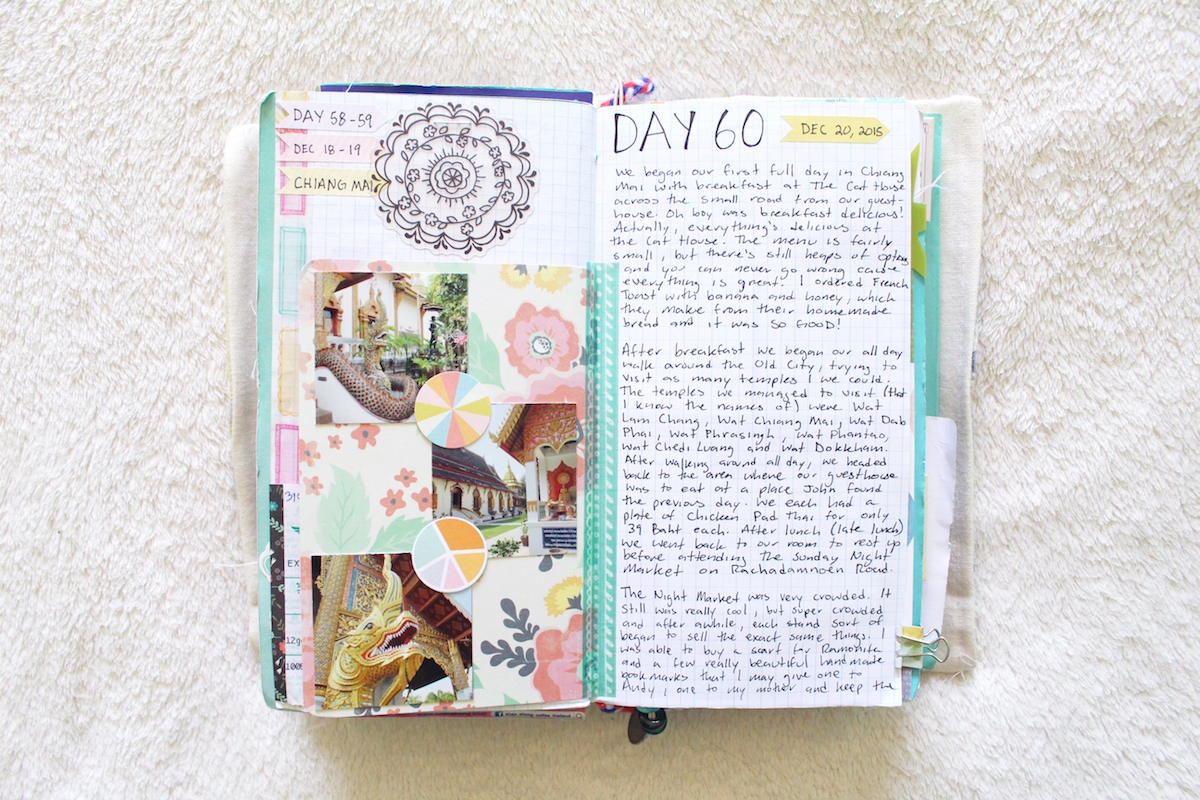 DAY 58-59
DEC 18-19
CHIANG MAI
310
EX
12g
100%
DAY 60
DEC 20, 2015
We began our first full day in Chiang
Mai with breakfast at The Cat House
across the small road from our guest-
house. Oh boy was breakfast delicious!
Actually, everything's delicious at
the Cat House. The menu is fairly
small, but there's still heaps of options
and you can never go wrong cause
everything is great! I ordered French
Toast with banana and honey, which
they make from their homemade
bread and it was SO GOOD!
After breakfast we began our all day
walk around the Old City, trying to
visit as many temples I we could.
The temples we managed to visit (that
I know the names of) were Wat
Lam Chang, Wat Chiang Mai, Wat Dab
Phai, Wat Phrasingh, Wat Phantao,
Wat Chedi Luang and Wat Dokkham.
After walking around all day, we headed
back to the area where our guesthouse
was to eat at a place John found
the previous day. We each had a
plate of Chicken Pad Thai for only
39 Baht each. After lunch (late lunch)
we went back to our room to rest up
before attending The Sunday Night
Market on Rachadamnoen Road.
The Night Market was very crowded. It
still was really cool, but super crowded
and after awhile, each stand sort of
began to sell the exact same things. I
was able to buy a scarf for Ramonita
and a few really beautiful handmade
bookmarks that I may give one to
Andy, one to my mother and keep the